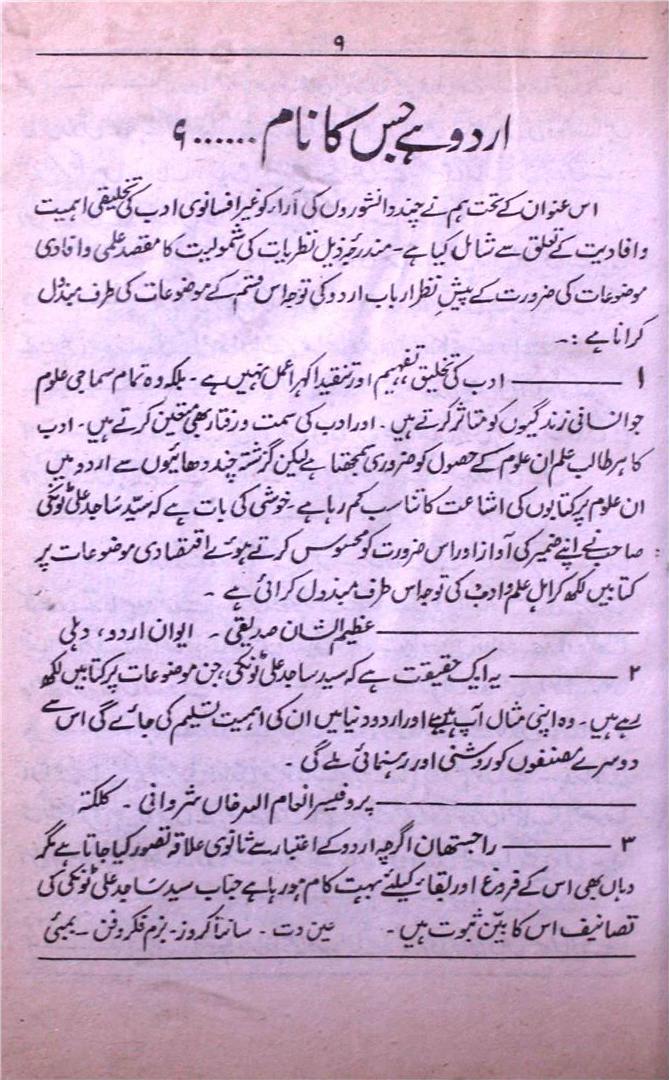 ۹
اردو ہے جس کا نام ...... ؟
اس عنوان کے تحت ہم نے چند دانشوروں کی آراء کو غیر افسانوی ادب کی تخلیقی اہمیت
و افادیت کے تعلق سے شامل کیا ہے۔ مندرجہ ذیل نظریات کی شمولیت کا مقصد علمی و افادی
موضوعات کی ضرورت کے پیش نظر ارباب اردو کی توجہ اس قسم کے موضوعات کی طرف مبذول
کرانا ہے :۔
۱ ——— ادب کی تخلیق، تفہیم اور تنقید اکہرا عمل نہیں ہے۔ بلکہ وہ تمام سماجی علوم
جو انسانی زندگیوں کو متاثر کرتے ہیں۔ اور ادب کی سمت و رفتار بھی متعین کرتے ہیں۔ ادب
کا ہر طالب علم ان علوم کے حصول کو ضروری سمجھتا ہے لیکن گزشتہ چند دھائیوں سے اردو میں
ان علوم پر کتابوں کی اشاعت کا تناسب کم رہا ہے۔ خوشی کی بات ہے کہ سیّد ساجد علی ٹونکی
صاحب نے اپنے ضمیر کی آواز اور اس ضرورت کو محسوس کرتے ہوئے اقتصادی موضوعات پر
کتابیں لکھ کر اہل علم و ادب کی توجہ اس طرف مبذول کرائی ہے ۔
——— عظیم الشان صدیقی ۔ ایوان اردو، دہلی
۲ ——— یہ ایک حقیقت ہے کہ سید ساجد علی ٹونکی، جن موضوعات پر کتابیں لکھ
رہے ہیں۔ وہ اپنی مثال آپ ہیں اور اردو دنیا میں ان کی اہمیت تسلیم کی جائے گی اس سے
دوسرے مصنفوں کو روشنی اور رہنمائی ملے گی ۔
——— پروفیسر انعام اللہ خاں شروانی ۔ کلکتہ
۳ ——— راجستھان اگرچہ اردو کے اعتبار سے ثانوی علاقہ تصور کیا جاتا ہے مگر
وہاں بھی اس کے فروغ اور بقاء کیلئے بہت کام ہو رہا ہے جناب سید ساجد علی ٹونکی کی
تصانیف اس کا بیّن ثبوت ہیں۔ عین دت ۔ سانتاکروز۔ بزم فکر و فن ۔ بمبئی